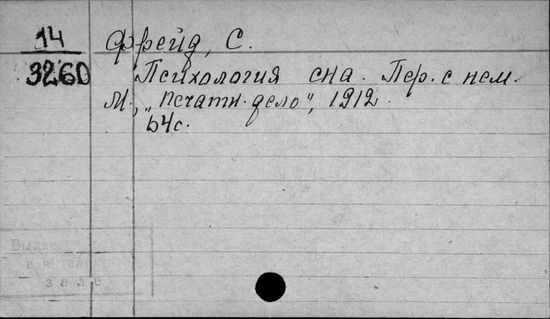 14
3260
Фрейд, С.
Психология сна. Пер. с нем.
М., „Печатн. дело", 1912.
64с.
Выдае
в ч
зале